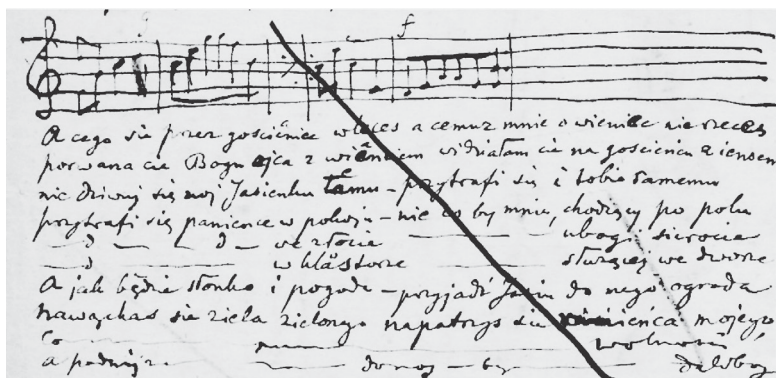 f
A cego sie przez gościniec wleces a cemuz mnie o wieniec nie rzeces
porwana cie Bogu ojca z wiénkiem widziałam cie na gościńcu z
nie dziwuj się moj Jasieńku temu – przytrafi się i tobie samemu
przytrafi się panience w pokoju – nie co by mnie, chodzący po polu
d d we złocie ubogi sierocie
d w klåstorze służący we dworze
A jak będzie słonko i pogoda – przyjadź Jasiu do nego ogroda
nawąchas sie ziela zielonego napatrys sie wieńca mojego
wolności
a podmij